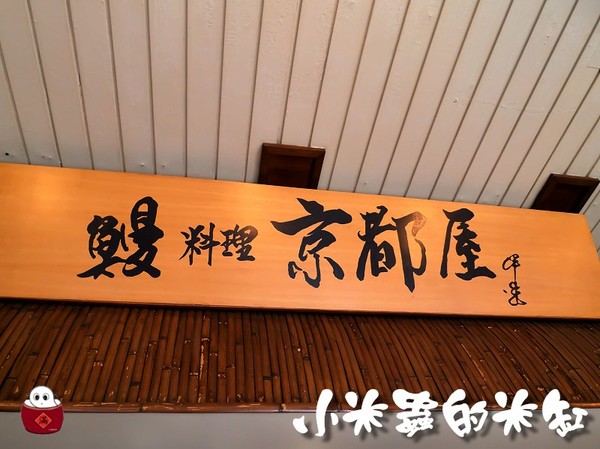 鰻料理 京都屋
小米蟲的米缸